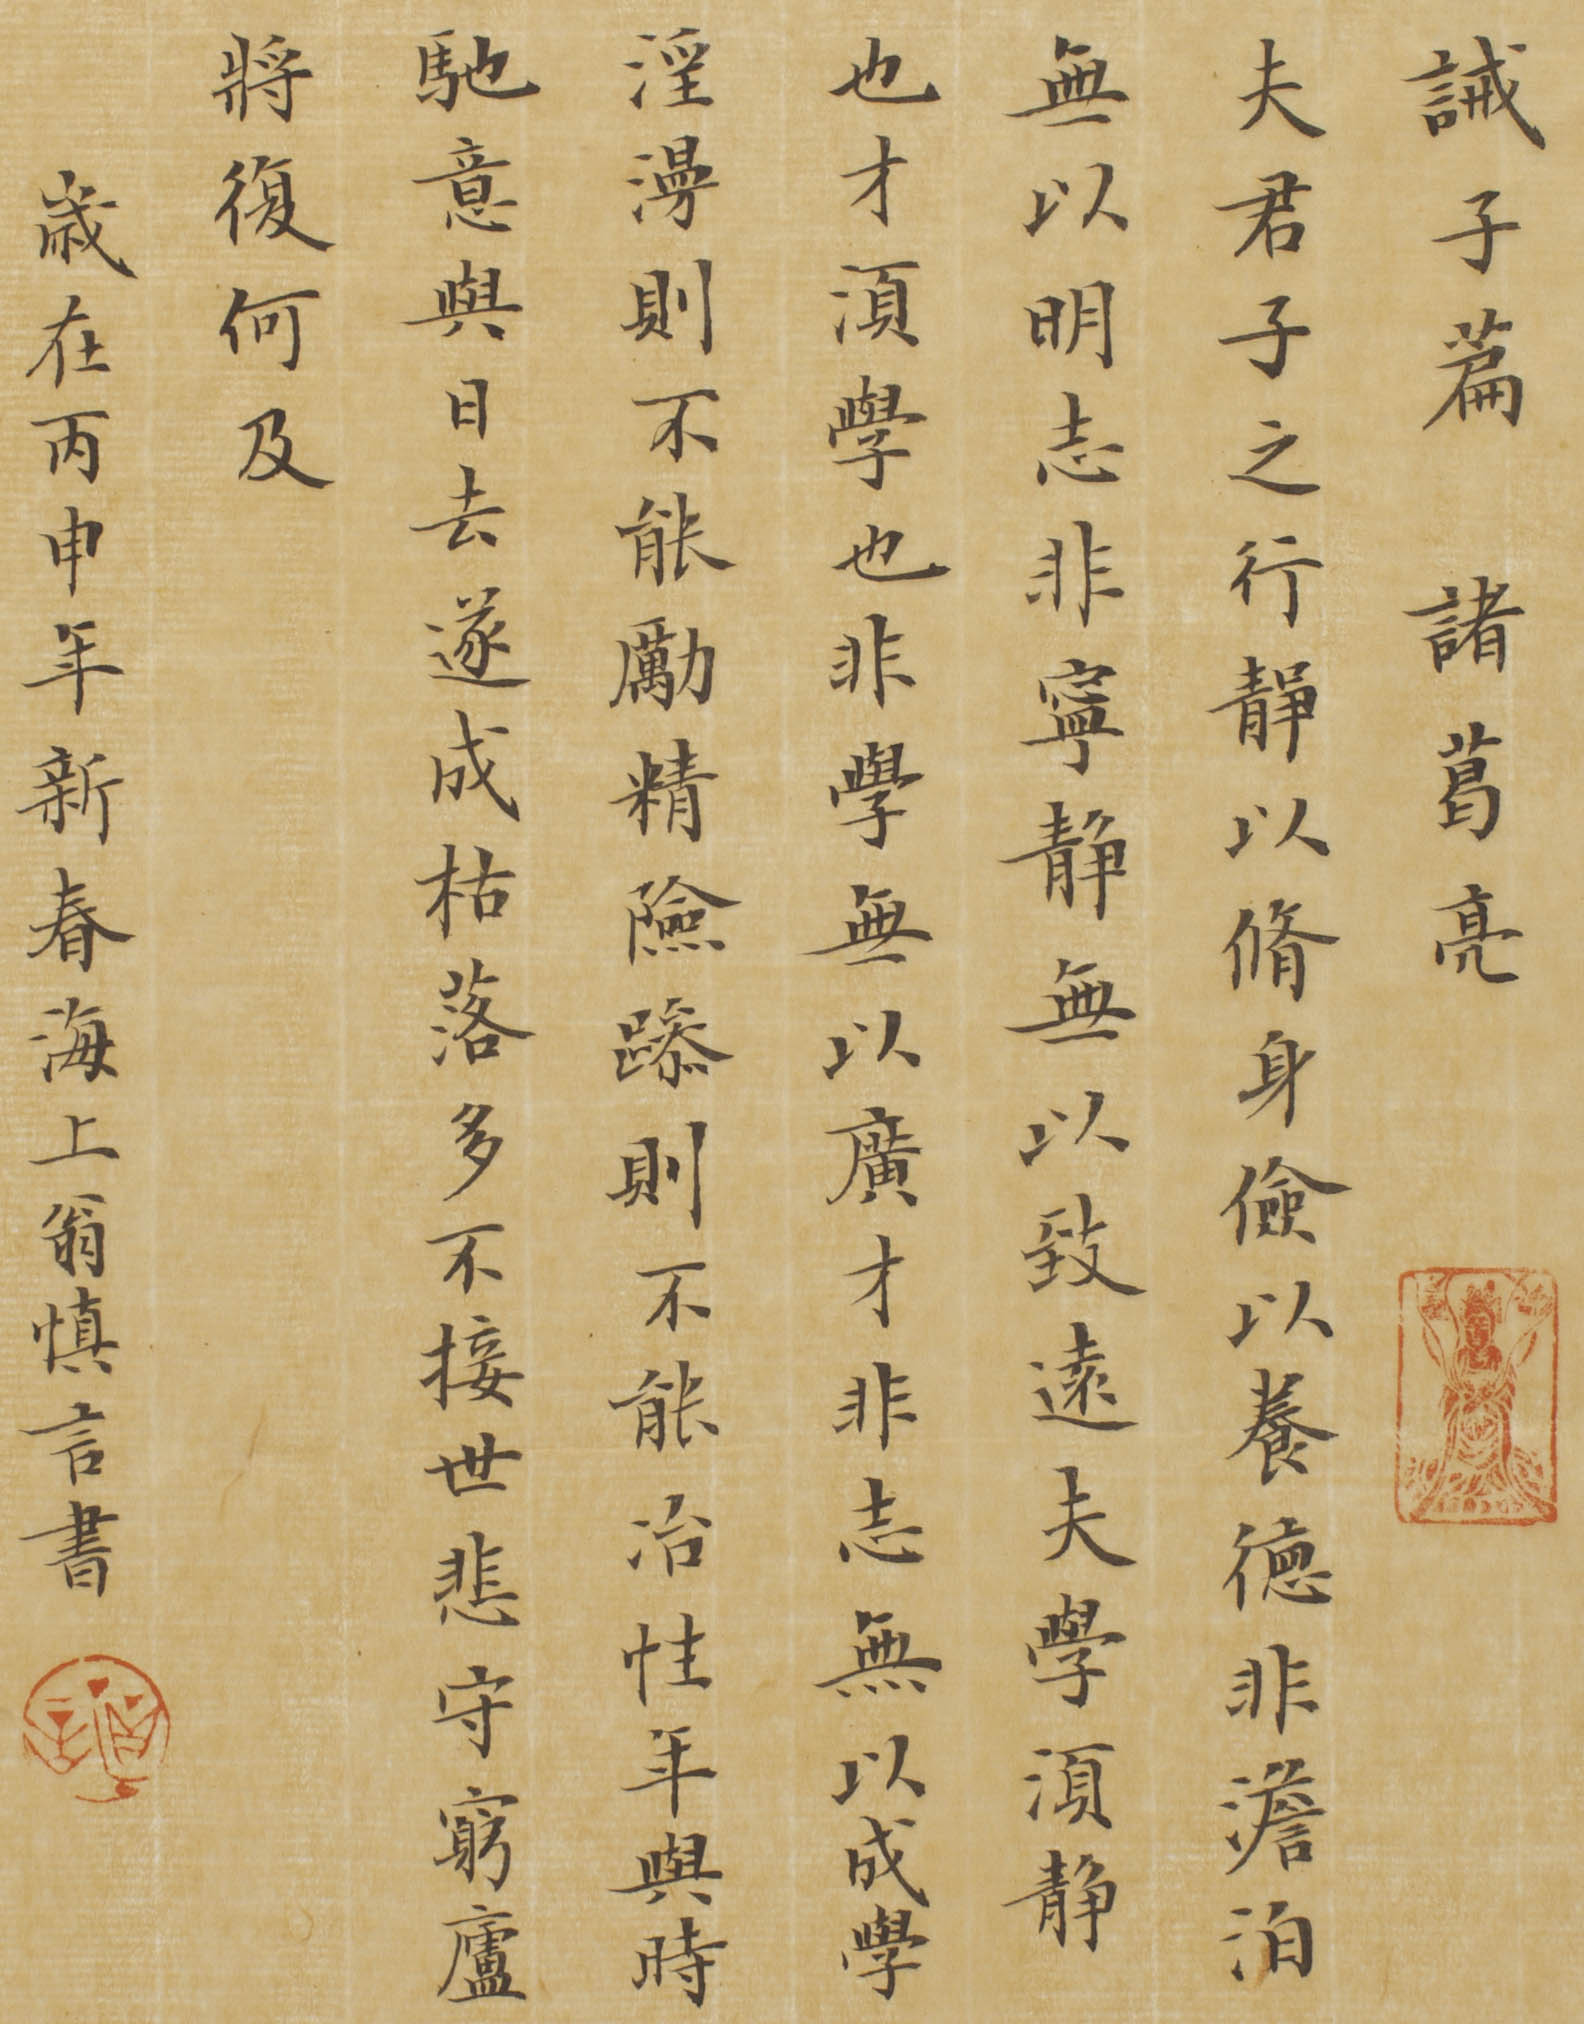 誡子篇 諸葛亮
夫君子之行靜以脩身儉以養德非澹泊
無以明志非寧静無以致遠夫學湏静
也才湏學也非學無以廣才非志無以成學
淫漫則不能勵精險躁則不能冶性年與時
馳意與日去遂成枯落多不接世悲守窮廬
將復何及
歲在丙申年新春海上翁慎言書